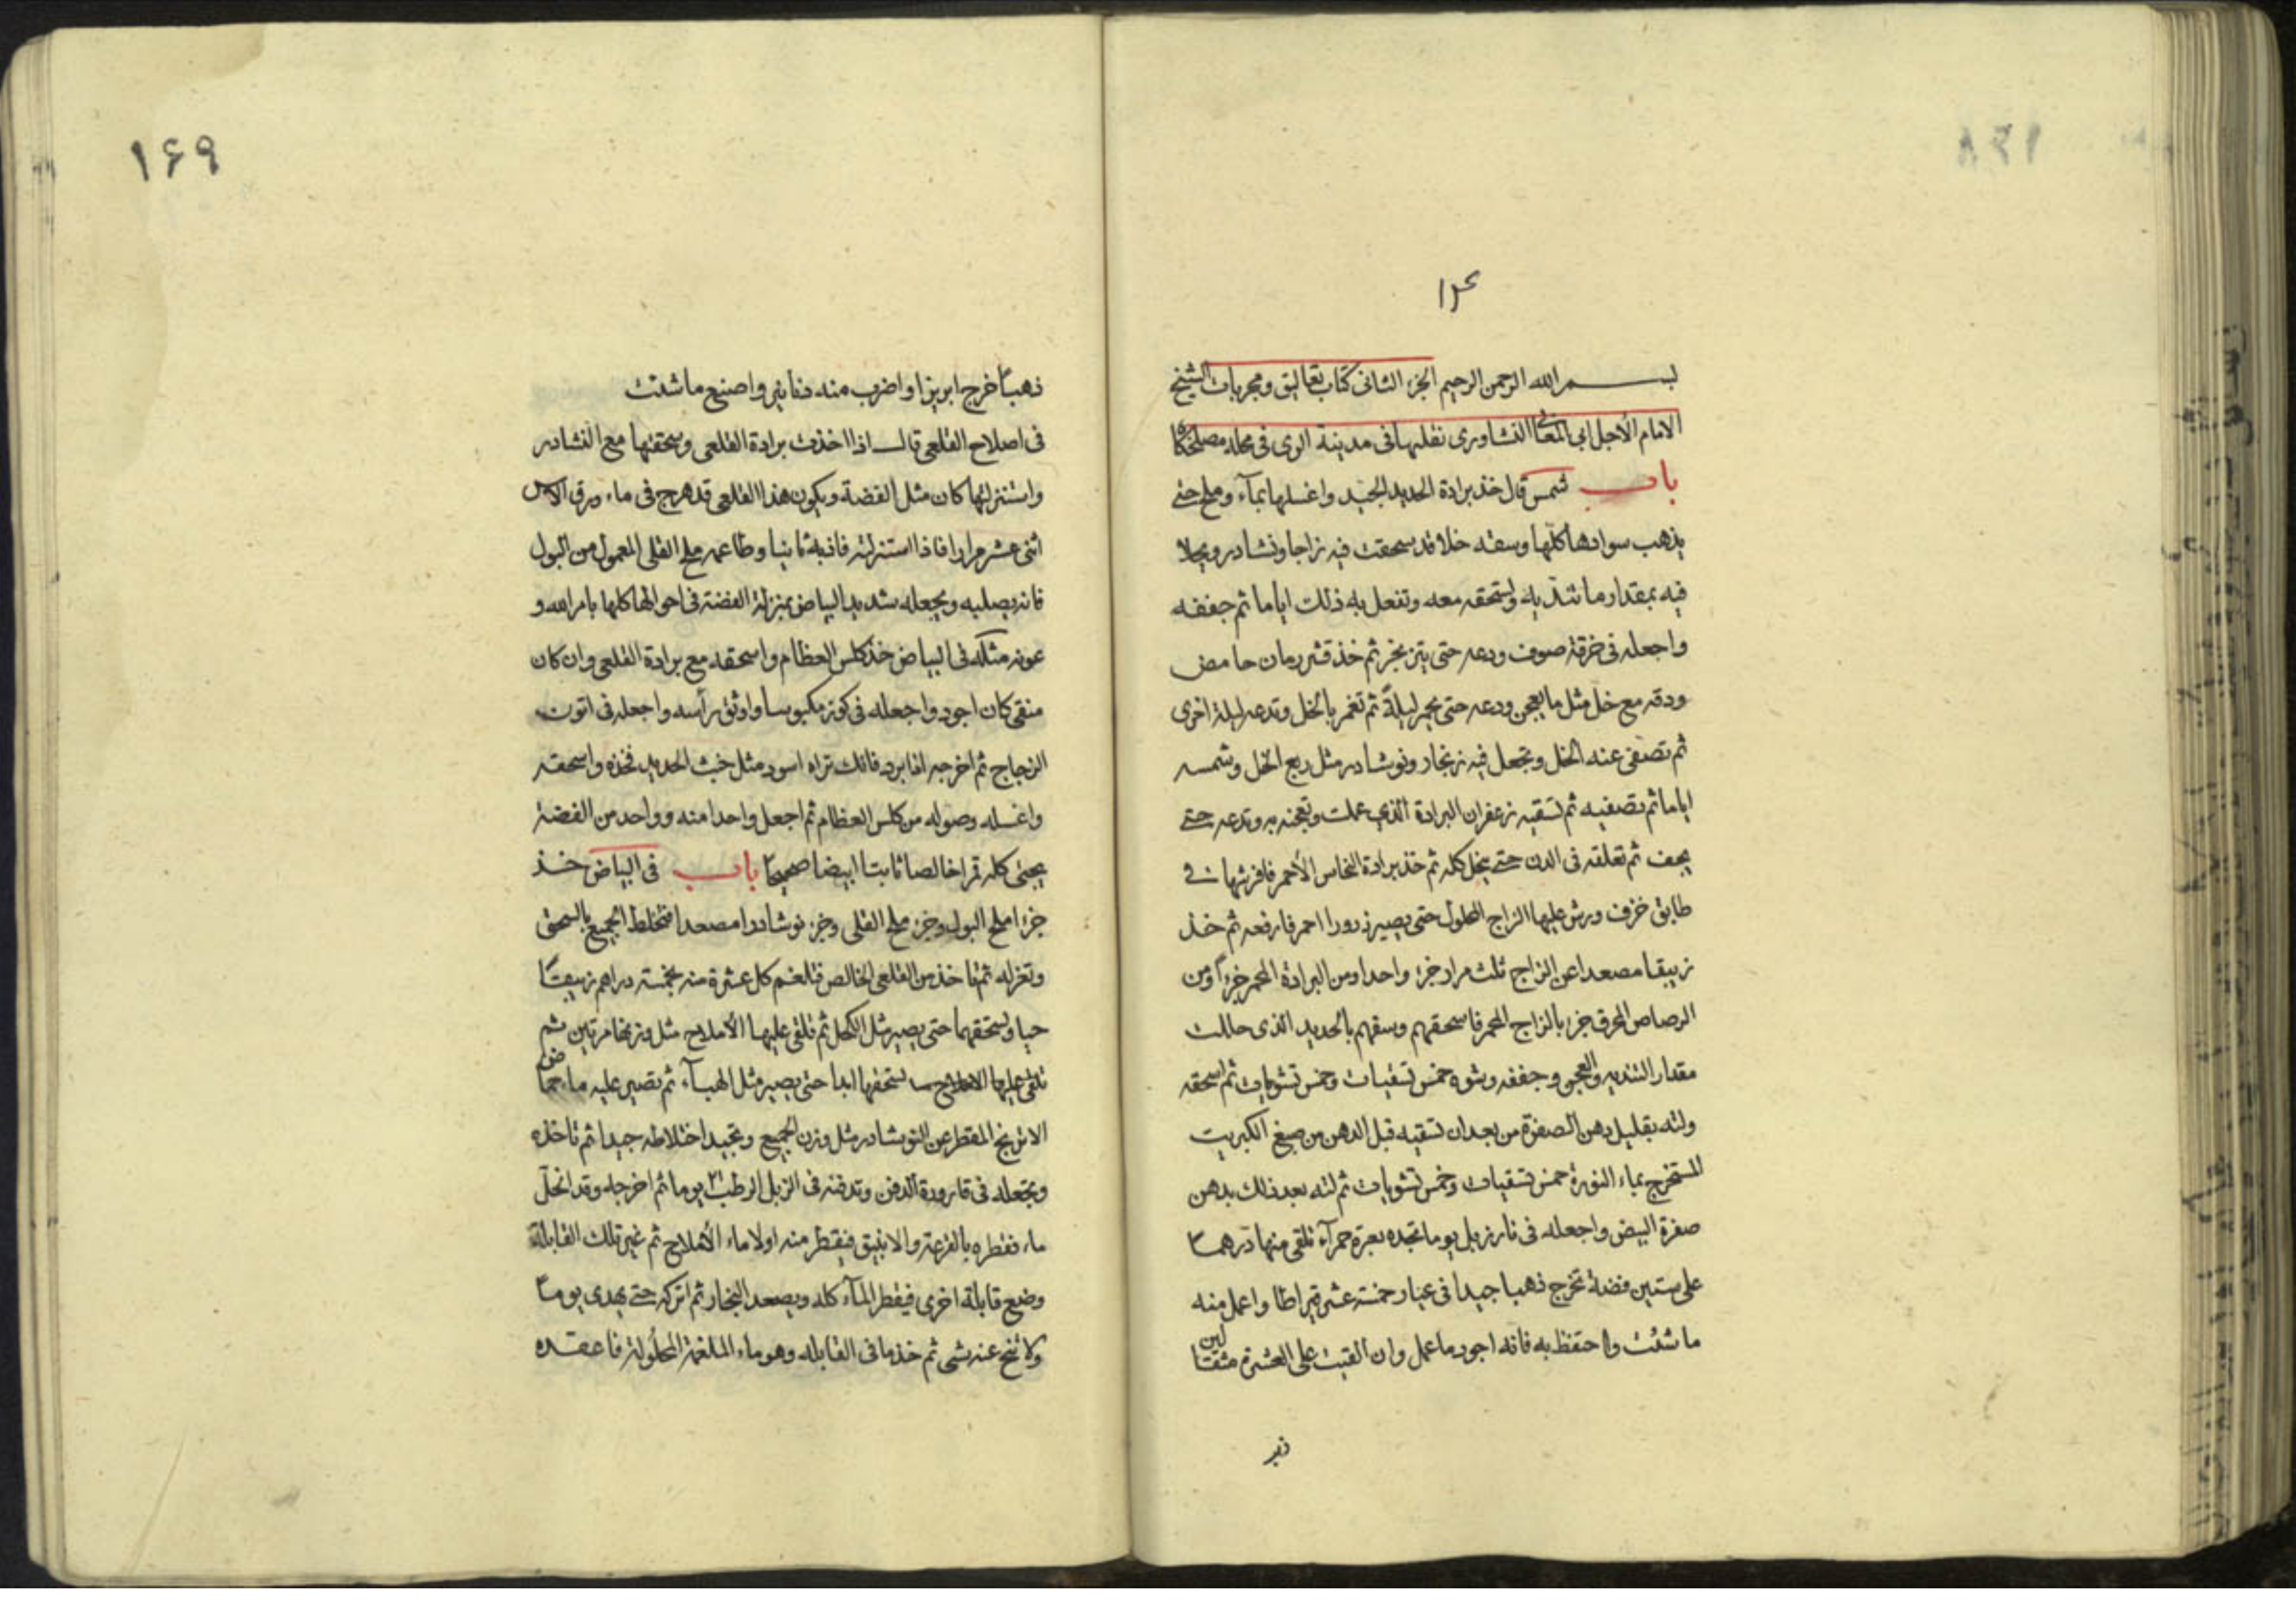 ١٤
بسم الله الرحمن الرحيم الجزء الثانى كتاب تعاليق ومجربات الشيخ
الامام الأجل ابى المعالى النشاورى نقلها فى مدينة الرى فى محلة مصلحكاه
باب شمس قال خذ برادة الحديد الجيد واغسلها بمآء وملح حتى
يذهب سوادها كلها وسقه خلا قد سحقت فيه زاجا ونشادر ويجلا
فيه بمقدار ما تنديه وتسحقه معه وتفعل به ذلك اياما ثم جففه
واجعله فى خرقة صوف ودعه حتى يتزنجر ثم خذ قشر رمان حامض
ودقه مع خل مثل ما يعجن ودعه حتى يحمر ليلةً ثم تغمر بالخل وتدعه ليلة اخرى
ثم تصفى عنه الخل وتجعل فيه زنجار ونوشادر مثل ربع الخل وشمسه
اياما ثم تصفيه ثم تسقيه زعفران البرادة الذى عملت وتعجنه به وتدعه حتى
يجف ثم تعلقه فى الدن حتى ينحل كله ثم خذ برادة النحاس الأحمر فافرشها فى
طابق خزف ورش عليها الزاج المحلول حتى يصير ذرورا احمر فارفعه ثم خذ
زيبقا مصعدا عن الزاج ثلث مرار جزء واحدا ومن البرادة المحمر جزءاً ومن
الرصاص المحرق جزء بالزاج المحمر فاسحقهم وسقهم بالحديد الذى حللت
مقدار التنديه والعجن وجففه وشوه خمس تسقيات وخمس تشويات ثم اسحقه
ولته بقليل دهن الصفرة من بعد ان تسقيه قبل الدهن من صبغ الكبريت
المستخرج بماء النورة خمس تسقيات وخمس تشويات ثم لته بعد ذلك بدهن
صفرة البيض واجعله فى نار زبل يوما تجده نقرة حمرآء تلقى منها درهما
على ستين فضة تخرج ذهبا جيدا فى عيار خمسة عشر قيراطا واعمل منه
ما شئت واحتفظ به فانه اجود ما عمل وان القيت على العشرة مثقالين
ذهبا
١۶٩
ذهباً خرج ابريزا واضرب منه دنانير واصنع ما شئت
فى اصلاح القلعى قال اذا اخذت برادة القلعى وسحقتها مع النشادر
واستنزلتها كان مثل الفضة ويكون هذا القلعى قد هرج فى ماء ورق الاس
اثنى عشر مرارا فاذا استنزلته فاذبه ثانيا وطاعمه ملح القلى المعمول من البول
فانه يصلبه ويجعله شديد البياض بمنزلة الفضة فى احوالها كلها بامر الله و
عونه مثله فى البياض خذ كلس العظام واسحقه مع برادة القلعى وان كان
منقى كان اجود واجعله فى كوز مكبوسا واوثق رأسه واجعله فى اتون
الزجاج ثم اخرجه اذا برد فانك تراه اسود مثل خبث الحديد فخذه واسحقه
واغسله وصوله من كلس العظام ثم اجعل واحدا منه وواحد من الفضة
يجئ كله قمرا خالصا ثابتا ابيضا صحيحا باب فى البياض خذ
جزءا ملح البول وجزء ملح القلى وجزء نوشادرا مصعدا فتخلط الجميع بالسحق
وتعزله ثم تاخذ من القلعى الخالص فتلغم كل عشرة منه بخمسة دراهم زيبقًا
حيا وتسحقهما حتى يصير مثل الكحل ثم تلقى عليها الأملاح مثل وزنها مرتين ثم
تلقى عليها الاملاح تسحقها ابدا حتى يصير مثل الهبآء ثم تصير عليه ماء حماض
الاترنج المقطر عن النوشادر مثل وزن الجميع وتجيد اختلاطه جيدا ثم تاخذه
وتجعله فى قارورة الدفن وتدفنه فى الزبل الرطب ٢١ يوما ثم اخرجه وقد انحل
ماء فقطره بالقرعة والانبيق فيقطر منه اولا ماء الأملاح ثم غير تلك القابلة
وضع قابلة اخرى فيقطر المآء كله ويصعد البخار ثم اتركه حتى يهدى يوماً
ولا تنح عنه شى ثم خذ ما فى القابله وهو ماء الملغمة المحلولة فاعقده